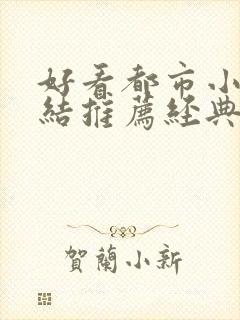 好看都市小
結推薦經典
賀蘭小新